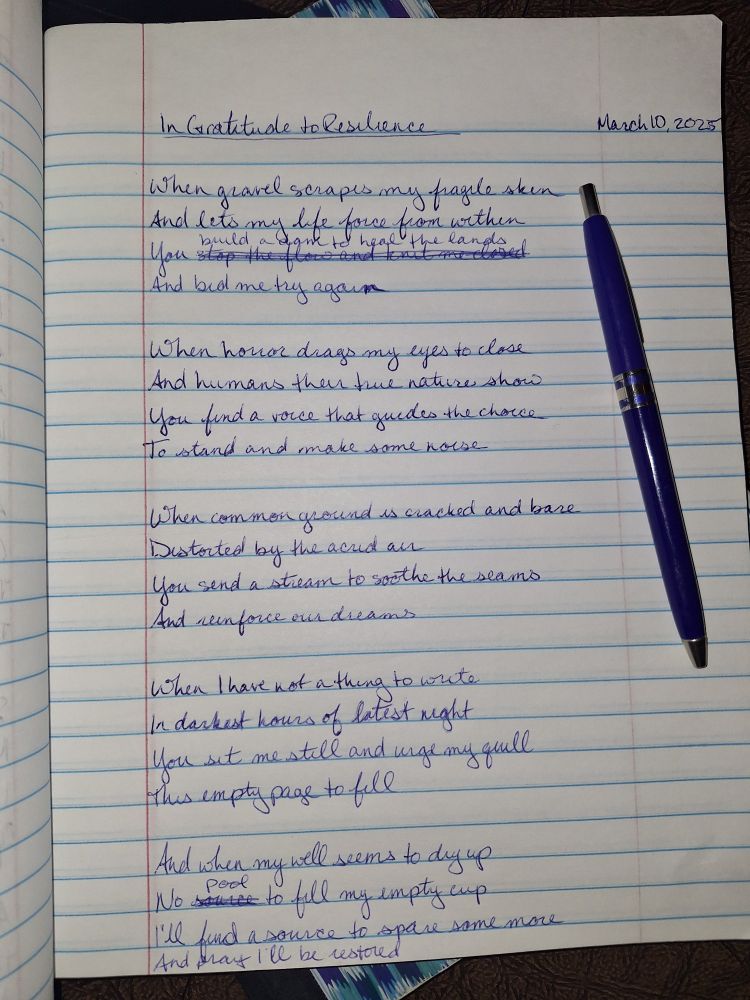 In Gratitude to Resilience
March 10, 2025
When gravel scrapes my fragile skin
And lets my life force from within
build a dam to heal the lands
You stop the flow and knit me closed
And bid me try again
When horror drags my eyes to close
And humans their true nature show
You find a voice that guides the choice
To stand and make some noise
When common ground is cracked and bare
Distorted by the acrid air
You send a stream to soothe the seams
And reinforce our dreams
When I have not a thing to write
In darkest hours of latest night
You sit me still and urge my quill
This empty page to fill
And when my well seems to dry up
pool
No source to fill my empty cup
I'll find a source to spare some more
And pray I'll be restored